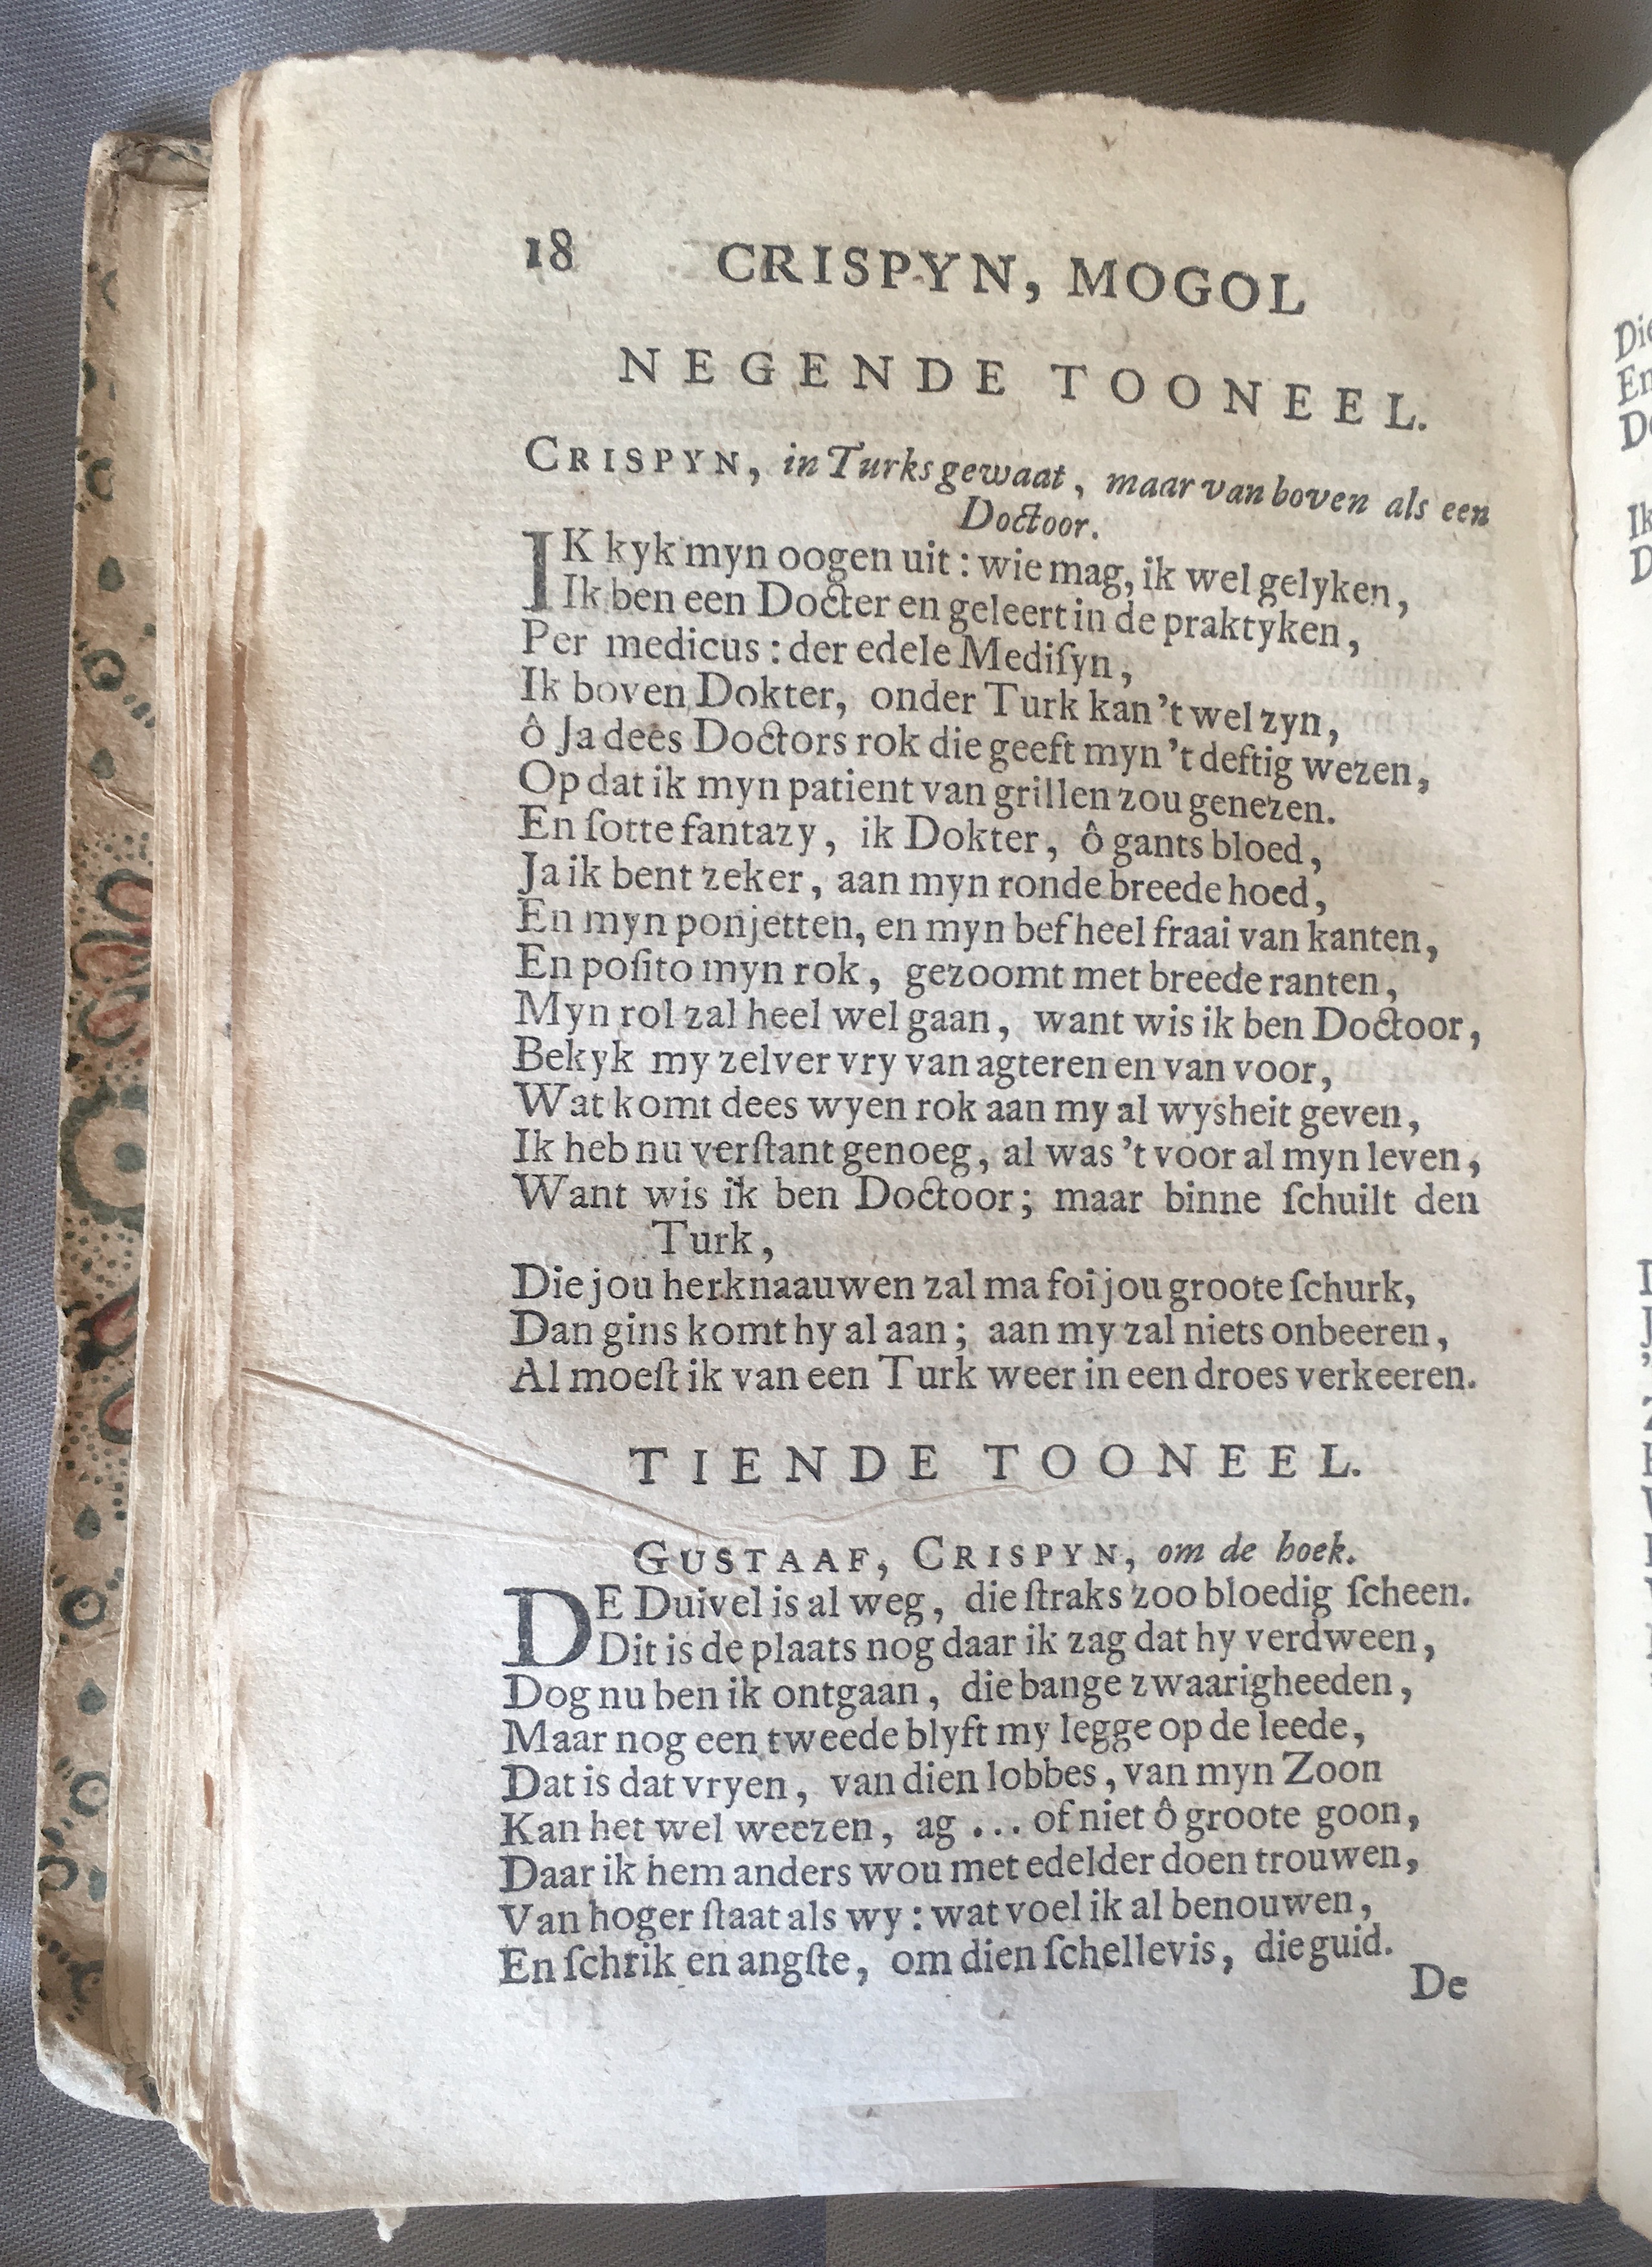 18 CRISPYN, MOGOL
NEGENDE TOONEEL.
CRISPYN, in Turks gewaat, maar van boven als een
Doctoor.
IK kyk myn oogen uit: wie mag, ik wel gelyken,
Ik ben een Docter en geleert in de praktyken,
Per medicus: der edele Mediſyn,
Ik boven Dokter, onder Turk kan't wel zyn,
ô Ja dees Doctors rok die geeft myn 't deftig wezen,
Op dat ik myn patient van grillen zou genezen.
En ſotte fantazy, ik Dokter, ô gants bloed,
Ja ik bent zeker, aan myn ronde breede hoed,
En myn ponjetten, en myn bef heel fraai van kanten,
En poſito myn rok, gezoomt met breede ranten,
Myn rol zal heel wel gaan, want wis ik ben Doctoor,
Bekyk my zelver vry van agteren en van voor,
Wat komt dees wyen rok aan my al wysheit geven,
Ik heb nu verſtant genoeg, al was 't voor al myn leven,
Want wis ik ben Doctoor; maar binne ſchuilt den
Turk,
Die jou herknaauwen zal ma foi jou groote ſchurk,
Dan gins komt hy al aan; aan my zal niets onbeeren,
Al moeſt ik van een Turk weer in een droes verkeeren.
TIENDE TOONEEL.
GUSTAAF, CRISPYN, om de hoek.
DE Duivel is al weg, die ſtraks zoo bloedig ſcheen.
Dit is de plaats nog daar ik zag dat hy verdween,
Dog nu ben ik ontgaan, die bange zwaarigheeden,
Maar nog een tweede blyft my legge op de leede,
Dat is dat vryen, van dien lobbes, van myn Zoon
Kan het wel weezen, ag ... of niet ô groote goon,
Daar ik hem anders wou met edelder doen trouwen,
Van hoger ſtaat als wy: wat voel ik al benouwen,
En ſchrik en angſte, om dien ſchellevis, die guid.
De